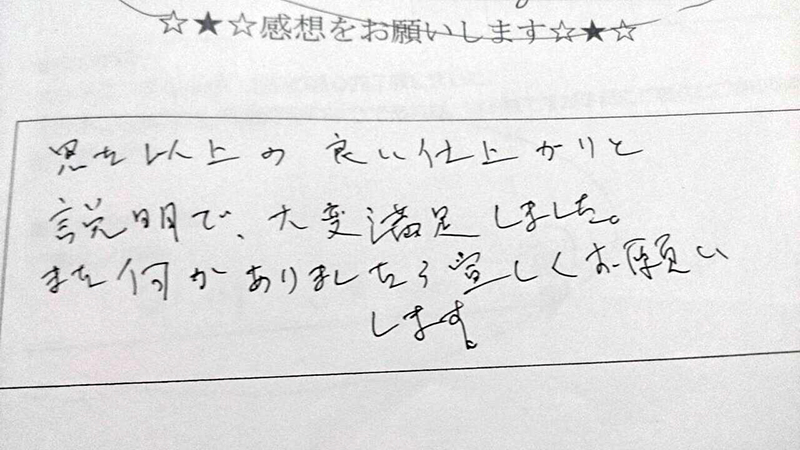 ☆★☆感想をお願いします☆★☆
思た以上の 良い仕上がりと
説明で、大変満足しました。
また何かありましたら宜しくお願い
します。